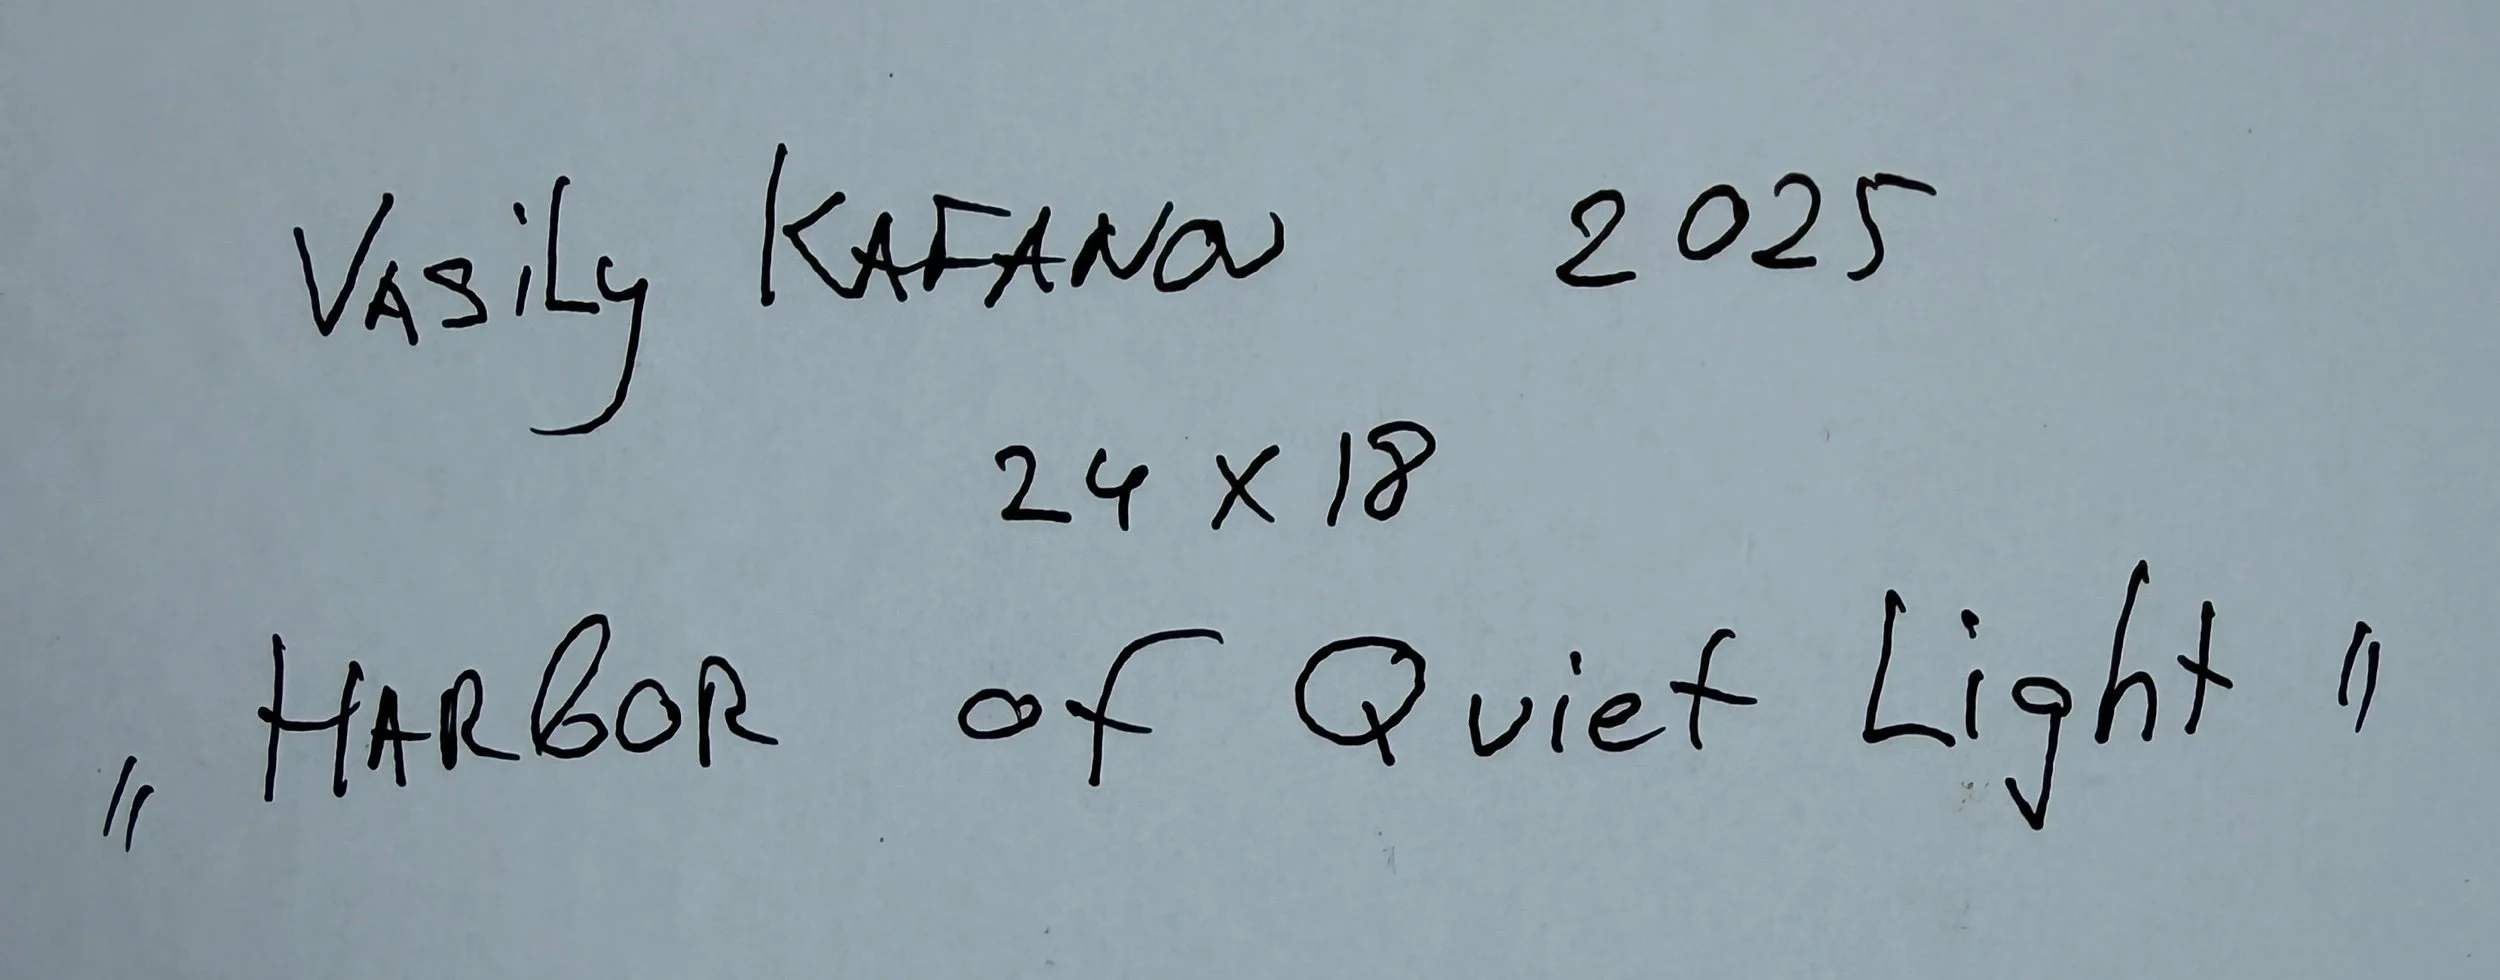 Vasily KAFANOV 2025
24 x 18
„HARBOR of Quiet Light"